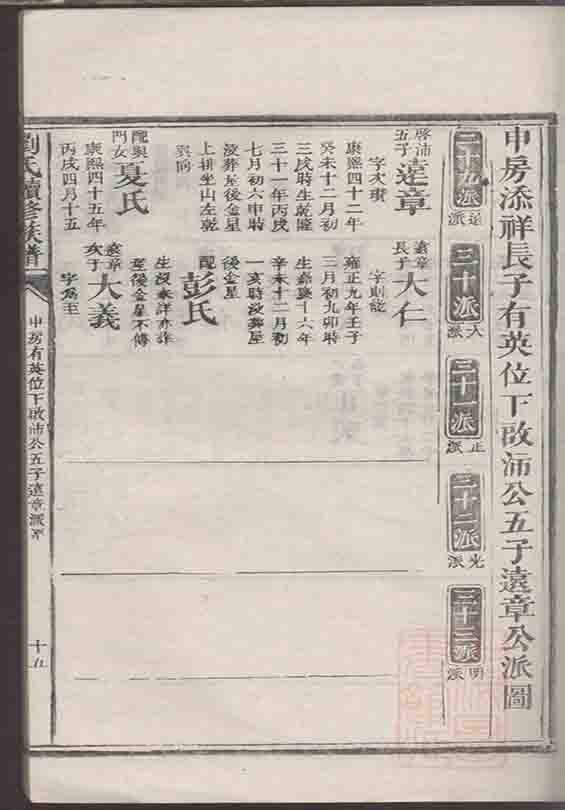 申房添祥長子有英位下啟沛公五子遠章公派圖
二十九派 遠派
三十派 大派
三十一派 正派
三十二派 光派
三十三派 明派
啓沛五子 遠章
字次
康熙四十二年
癸未十二月初
三戌時生乾隆
三十一年丙戌
七月初六申時
沒葬屋後金星
上排坐山左乾
巽向
配與門女 夏氏
康熙四十五年
丙戌四月十五
遠章長子 大仁
字則
雍正九年壬子
三月初九卯時
生嘉慶十六年
辛未十二月初
一亥時沒葬屋
後金星
配 彭氏
生沒未詳亦葬
屋後金星不傳
遠章次子 大義
字為至
劉氏續修族譜
申房有英位下啟沛公五子遠章派系
十五